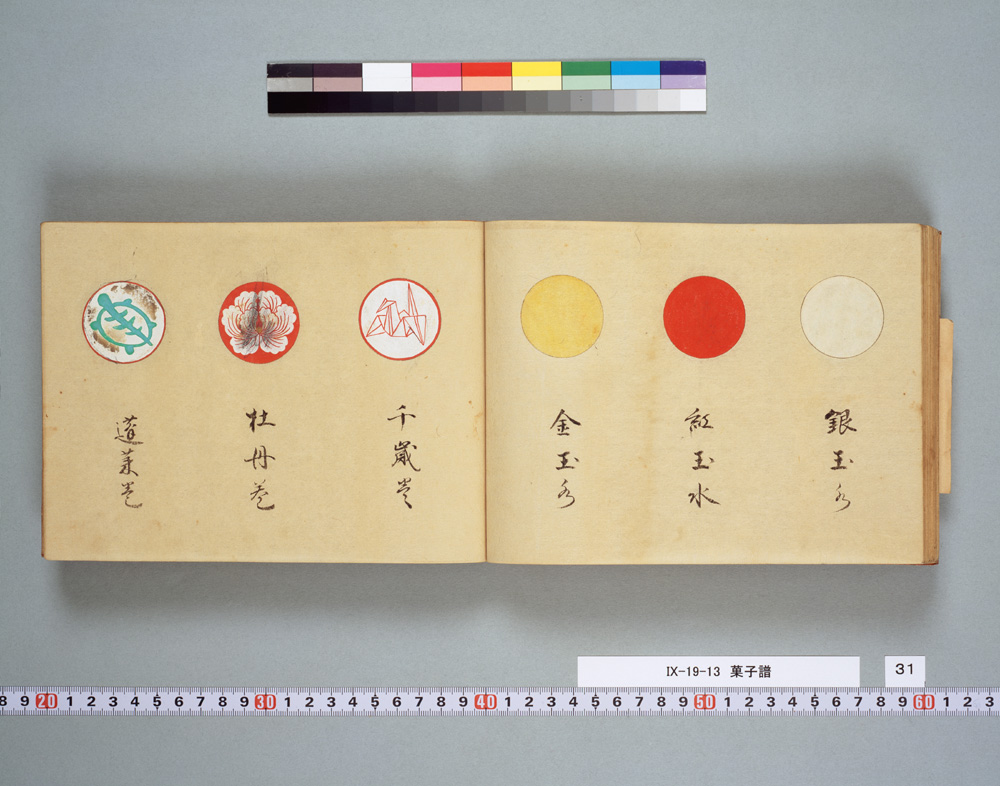 銀玉水
紅玉水
金玉水
千歳巻
牡丹巻
蓬莱巻
IX-19-13 菓子譜
31
8 9 20 1 2 3 4 5 6 7 8 9 30 1 2 3 4 5 6 7 8 9 40 1 2 3 4 5 6 7 8 9 50 1 2 3 4 5 6 7 8 9 60 1 2 3